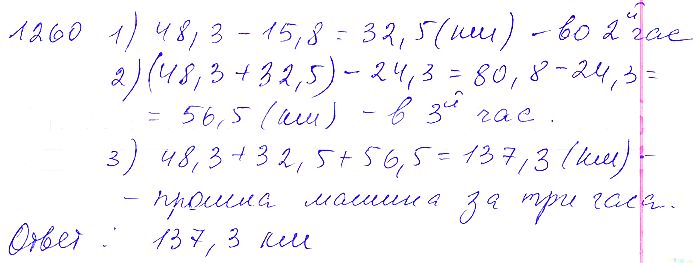 1260 1) 48,3 - 15,8 = 32,5 (км) - во 2й час
2) (48,3 + 32,5) - 24,3 = 80,8 - 24,3 =
= 56,5 (км) - в 3й час.
3) 48,3 + 32,5 + 56,5 = 137,3 (км) -
- прошла машина за три часа.
Ответ: 137,3 км